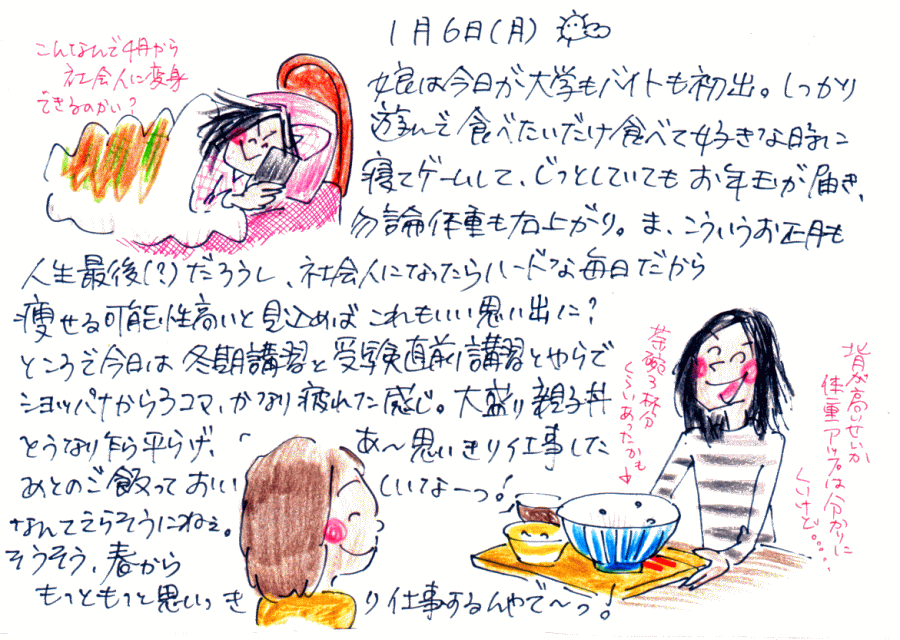 1月6日(月)
こんなんで4月から
社会人に変身
できるのかい?
娘は今日が大学もバイトも初出。しっかり
遊んで食べたいだけ食べて好きな時に
寝てゲームして、じっとしていてもお年玉が届き、
勿論体重も右上がり。ま、こういうお正月も
人生最後(?)だろうし、社会人になったらハードな毎日だから
痩せる可能性高いと見込めばこれもいい思い出に?
ところで今日は冬期講習と受験直前講習とやらで
ショッパナから3コマ、かなり疲れた感じ。大盛り親子丼
とうなり乍ら平らげ、「あ〜思いきり仕事した
あとのご飯っておいしいなーっ!
なんてえらそうにねぇ。
そうそう、春から
もっともっと思いっきり仕事するんやで〜っ!
茶碗3杯分
くらいあったかも
背が高いせいか
体重アップは分かりに
くいけど....